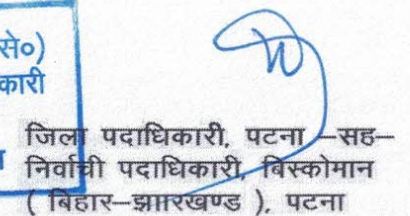 से०)
कारी
जिला पदाधिकारी, पटना –सह–
निर्वाची पदाधिकारी, बिस्कोमान
( बिहार–झारखण्ड ), पटना